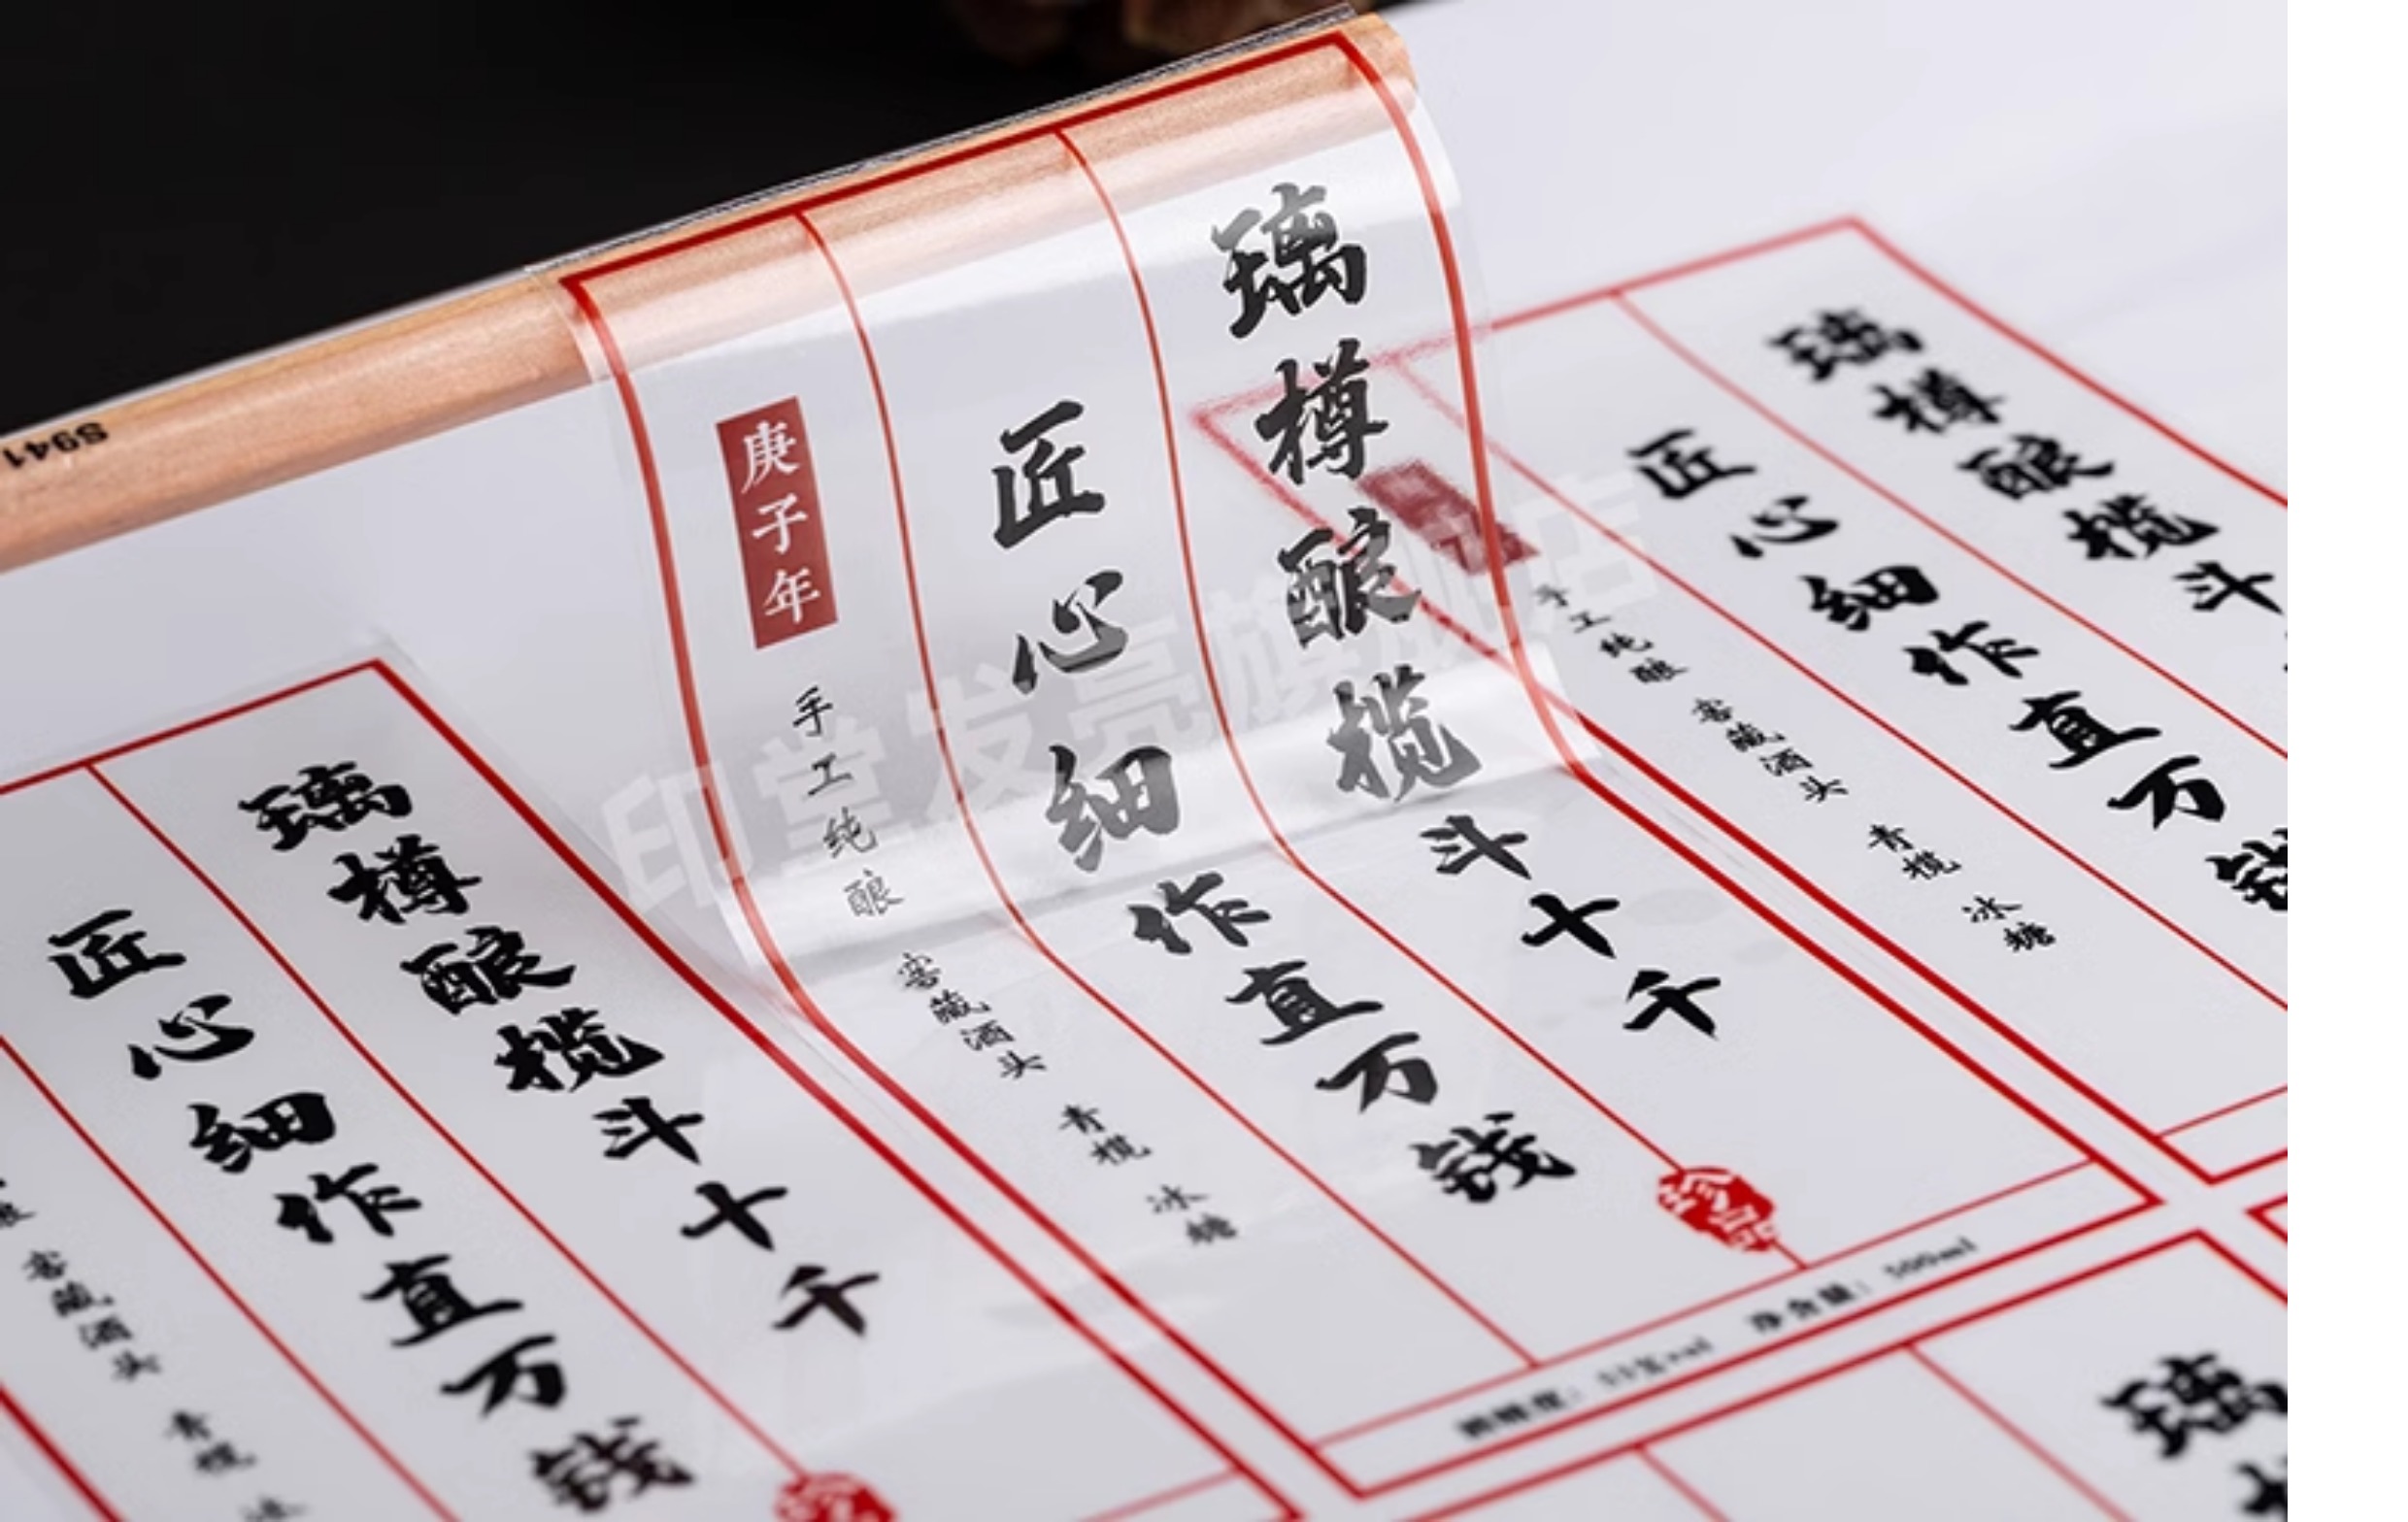 璃樽酿榄斗十千
匠心细作直万钱
庚子年
手工纯酿 窖藏酒头 青榄 冰糖
珍品
净含量：500ml
璃樽酿榄斗十千
匠心细作直万钱
窖藏酒头 青榄 冰
璃樽酿榄斗
匠心细作直万钱
手工纯酿 窖藏酒头 青榄 冰糖
璃
S941
印堂发亮旗舰店